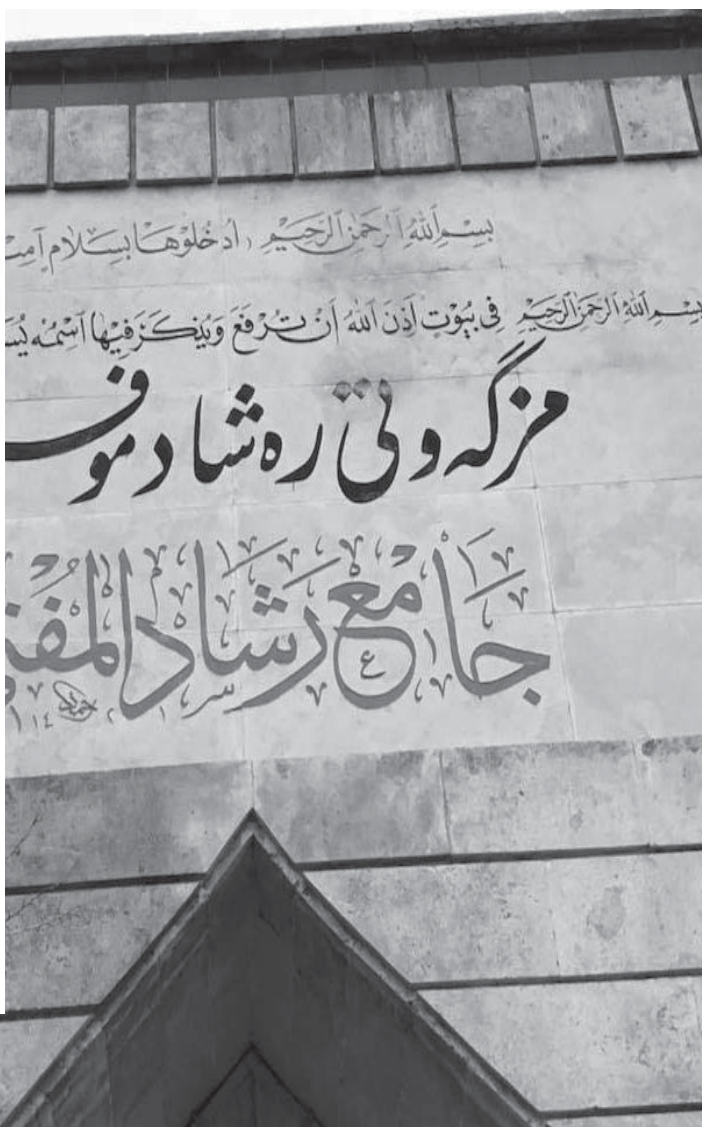 بِسْمِ اللهِ الرَّحْمٰنِ الرَّحِيْمِ ، أُدْخُلُوْهَا بِسَلَامٍ آمِنـ
بِسْمِ اللهِ الرَّحْمٰنِ الرَّحِيْمِ فِي بُيُوْتٍ أَذِنَ اللهُ أَنْ تُرْفَعَ وَيُذْكَرَ فِيْهَا اسْمُهُ يُسَـ
مزگه‌وتی ره‌شاد موفـ
جَامع رَشَاد المُفتـ